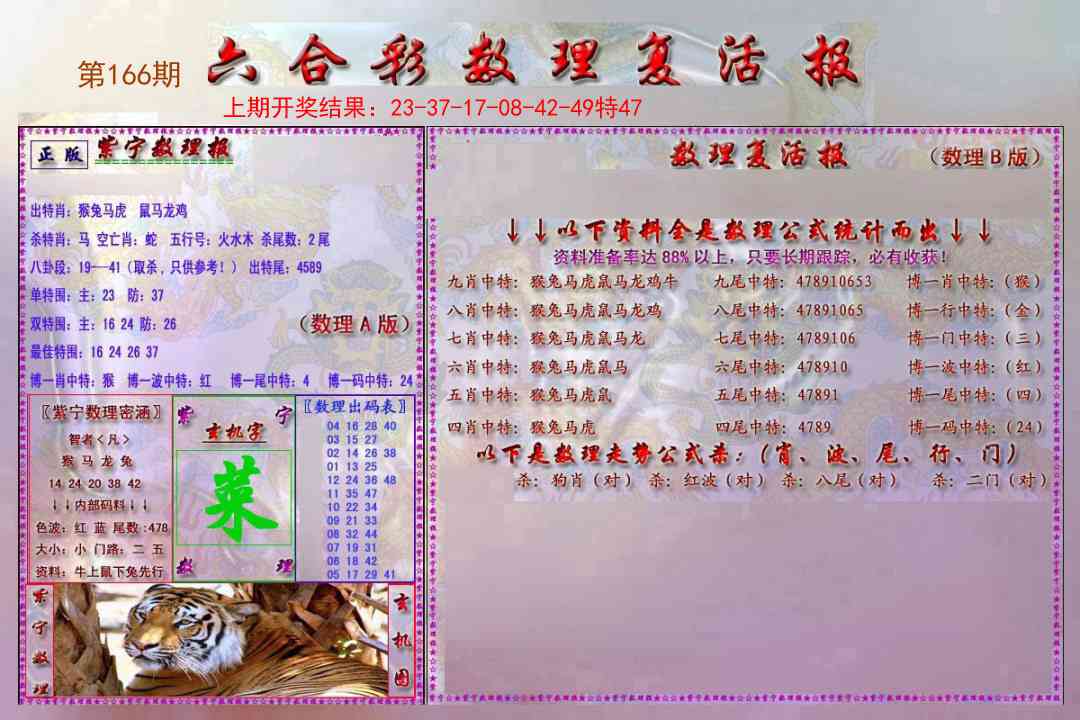 第166期
六合彩数理复活报
上期开奖结果：23-37-17-08-42-49特47
正版 紫宁数理报
出特肖：猴兔马虎 鼠马龙鸡
杀特肖：马 空亡肖：蛇 五行号：火水木 杀尾数：2尾
八卦段：19--41（取杀，只供参考！） 出特尾：4589
单特围：主：23 防：37
双特围：主：16 24 防：26
（数理A版）
最佳特围：16 24 26 37
博一肖中特：猴 博一波中特：红 博一尾中特：4 博一码中特：24
〖紫宁数理密涵〗
智者＜凡＞
猴 马 龙 兔
14 24 20 38 42
↓↓内部码料↓↓
色波：红 蓝 尾数：478
大小：小 门路：二 五
资料：牛上鼠下兔先行
紫 宁
玄机字
菜
数 理
〖数理出码表〗
04 16 28 40
03 15 27
02 14 26 38
01 13 25
12 24 36 48
11 35 47
10 22 34
09 21 33
08 32 44
07 19 31
06 18 42
05 17 29 41
紫宁数理
玄机图
数理复活报
（数理B版）
↓↓以下资料全是数理公式统计而出↓↓
资料准备率达88%以上，只要长期跟踪，必有收获！
九肖中特：猴兔马虎鼠马龙鸡牛 九尾中特：478910653 博一肖中特：（猴）
八肖中特：猴兔马虎鼠马龙鸡 八尾中特：47891065 博一行中特：（金）
七肖中特：猴兔马虎鼠马龙 七尾中特：4789106 博一门中特：（三）
六肖中特：猴兔马虎鼠马 六尾中特：478910 博一波中特：（红）
五肖中特：猴兔马虎鼠 五尾中特：47891 博一尾中特：（四）
四肖中特：猴兔马虎 四尾中特：4789 博一码中特：（24）
以下是数理走势公式杀：（肖、波、尾、行、门）
杀：狗肖（对） 杀：红波（对） 杀：八尾（对） 杀：二门（对）